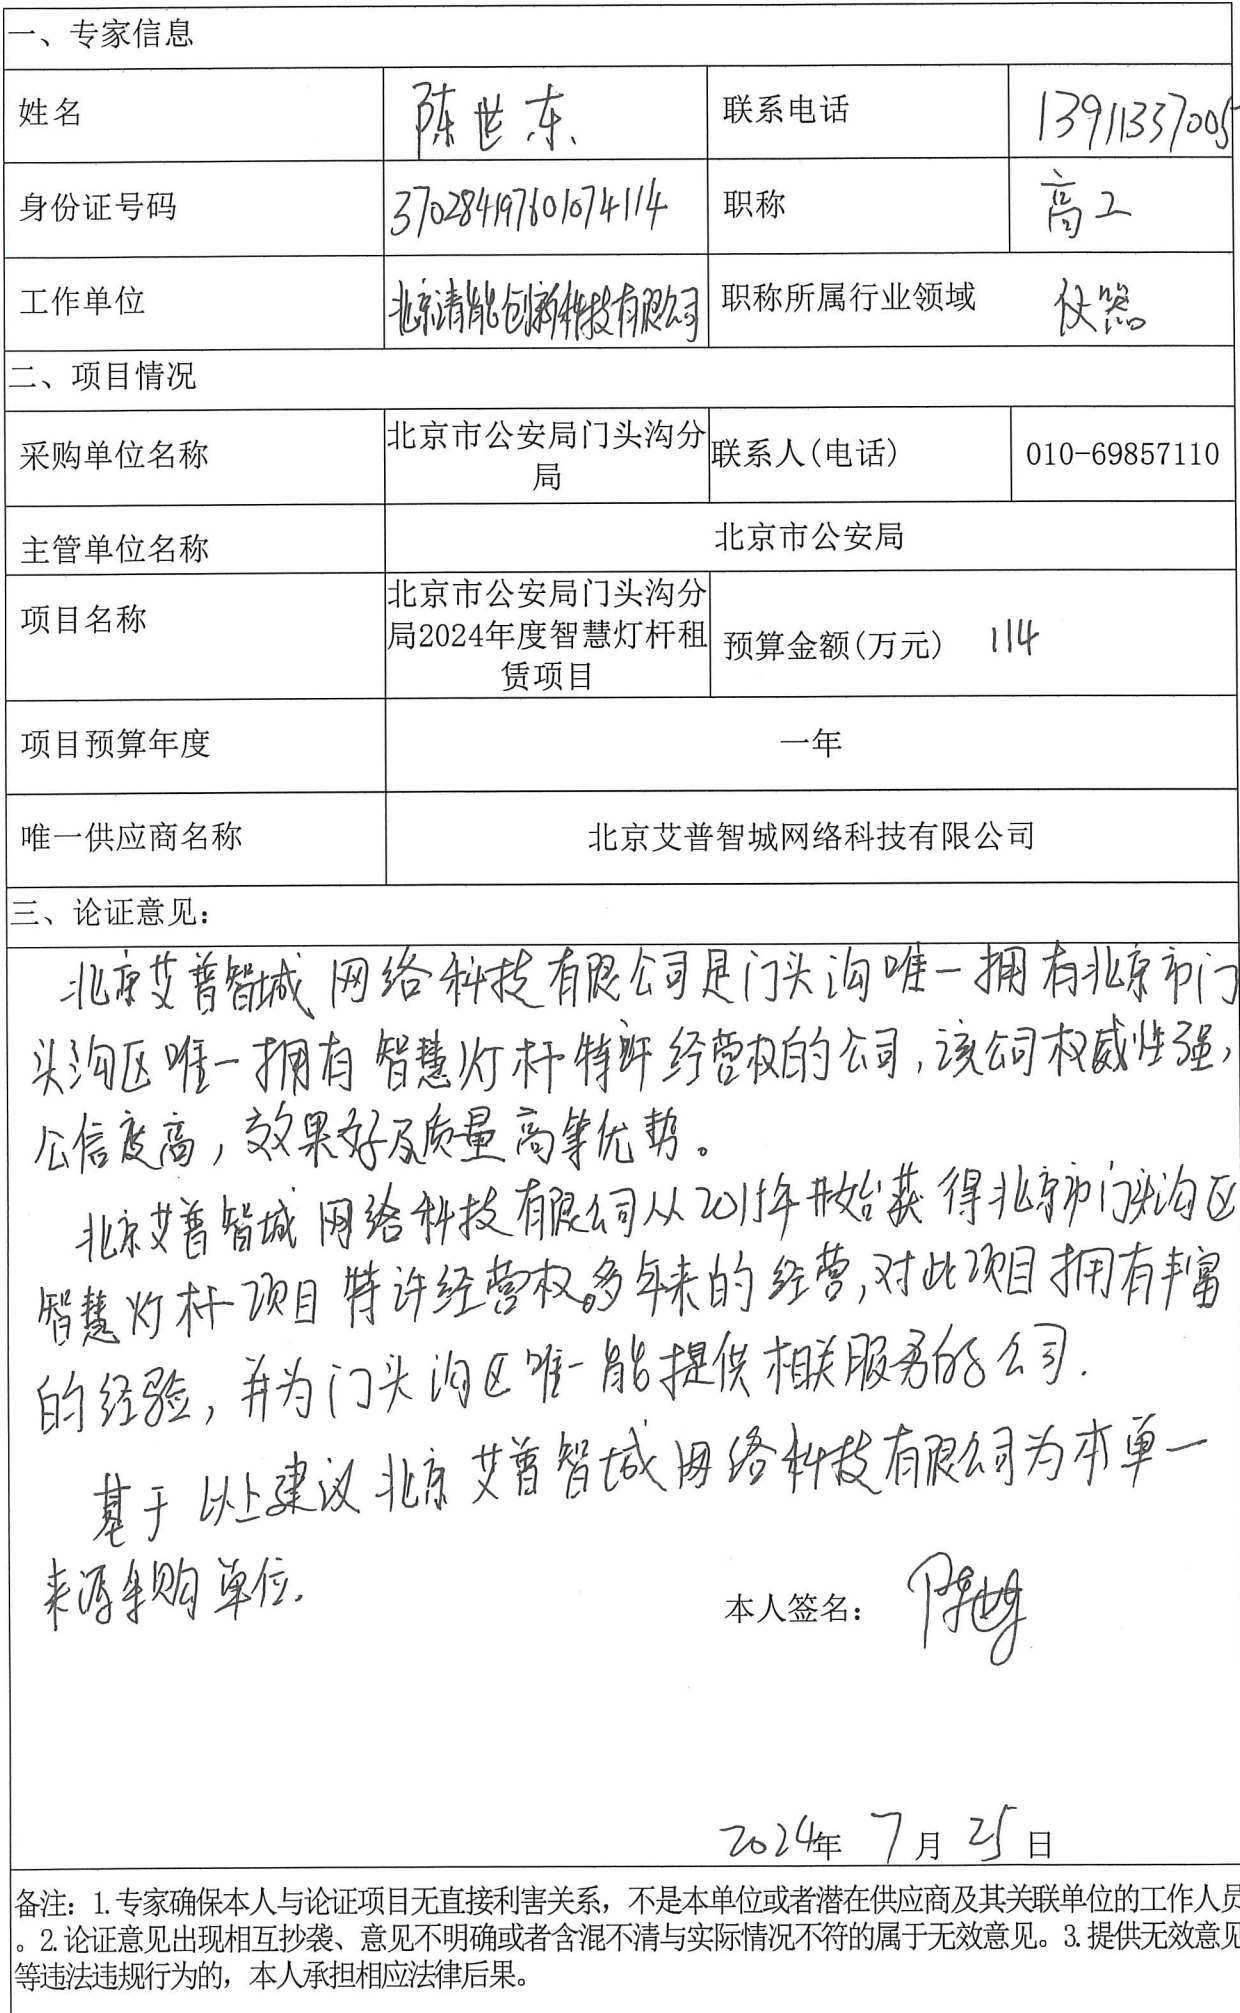 一、专家信息
姓名 陈世东 联系电话 13911337005
身份证号码 370284197601074114 职称 高工
工作单位 北京清能创新科技有限公司 职称所属行业领域 仪器
二、项目情况
采购单位名称 北京市公安局门头沟分局 联系人(电话) 010-69857110
主管单位名称 北京市公安局
项目名称 北京市公安局门头沟分局2024年度智慧灯杆租赁项目 预算金额(万元) 114
项目预算年度 一年
唯一供应商名称 北京艾普智城网络科技有限公司
三、论证意见：
北京艾普智城网络科技有限公司是门头沟唯一拥有北京市门
头沟区唯一拥有智慧灯杆特许经营权的公司,该公司权威性强,
公信度高,效果好及质量高等优势。
北京艾普智城网络科技有限公司从2015年开始获得北京市门头沟区
智慧灯杆项目特许经营权。多年来的经营,对此项目拥有丰富
的经验,并为门头沟区唯一能提供相关服务的公司.
基于以上建议北京艾普智城网络科技有限公司为本单一
来源采购单位.
本人签名： 陈世东
2024年 7月 25日
备注：1.专家确保本人与论证项目无直接利害关系，不是本单位或者潜在供应商及其关联单位的工作人员
。2.论证意见出现相互抄袭、意见不明确或者含混不清与实际情况不符的属于无效意见。3.提供无效意见
等违法违规行为的，本人承担相应法律后果。